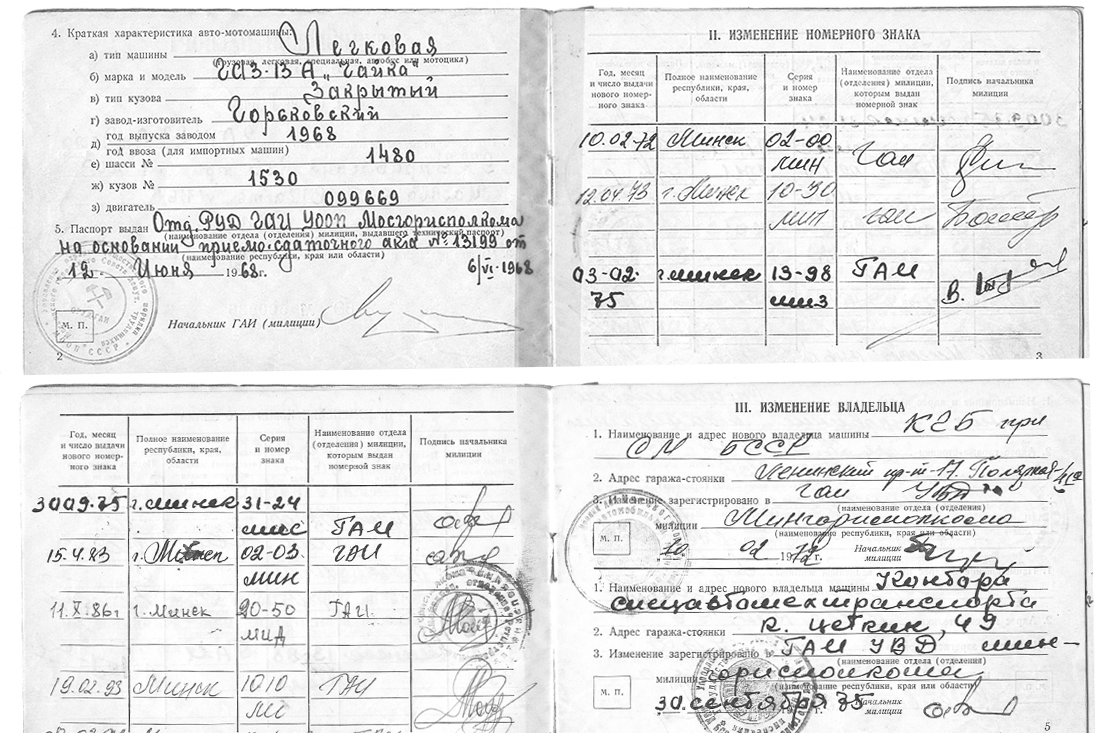 4. Краткая характеристика авто-мотомашины:
а) тип машины Легковая
(грузовая, легковая, специальная, автобус или мотоцикл)
б) марка и модель ГАЗ-13 А „Чайка"
в) тип кузова Закрытый
г) завод-изготовитель Горьковский
д) год выпуска заводом 1968
год ввоза (для импортных машин)
е) шасси № 1480
ж) кузов № 1530
з) двигатель 099669
5. Паспорт выдан Отд. РУД ГАИ УООП Мосгорисполкома
(наименование отдела (отделения) милиции, выдавшего технический паспорт)
на основании приемо-сдаточного акта № 13199 от
(наименование республики, края или области)
12 Июня 1968г. 6/VI-1968
М. П.
Начальник ГАИ (милиции)
2
II. ИЗМЕНЕНИЕ НОМЕРНОГО ЗНАКА
Год, месяц и число выдачи нового номерного знака
Полное наименование республики, края, области
Серия и номер знака
Наименование отдела (отделения) милиции, которым выдан номерной знак
Подпись начальника милиции
10.02.72 Минск 02-00 мин ГАИ
12.04.73 г. Минск 10-30 мип ГАИ
03-02-75 г. Минск 13-98 миз ГАИ
3
Год, месяц и число выдачи нового номерного знака
Полное наименование республики, края, области
Серия и номер знака
Наименование отдела (отделения) милиции, которым выдан номерной знак
Подпись начальника милиции
30.09.75 г. Минск 31-24 мис ГАИ
15.4.83 г. Минск 02-03 мин ГАИ
11.X.86г г. Минск 20-50 мид ГАИ
19.02.93 Минск 1010 мс ГАИ
III. ИЗМЕНЕНИЕ ВЛАДЕЛЬЦА
1. Наименование и адрес нового владельца машины КГБ при
СМ БССР
2. Адрес гаража-стоянки Ленинский пр-т-17.
3. Изменение зарегистрировано в ГАИ УВД
(наименование отдела (отделения)
милиции Мингорисполкома
(наименование республики, края или области)
М. П.
10 02 1972 г. Начальник милиции
1. Наименование и адрес нового владельца машины Контора
спецавтомехтранспорта
2. Адрес гаража-стоянки К. Цеткин, 49
3. Изменение зарегистрировано в ГАИ УВД мин-
(наименование отдела (отделения)
милиции горисполкома
(наименование республики, края или области)
М. П.
30 сентября 75 г. Начальник милиции
5